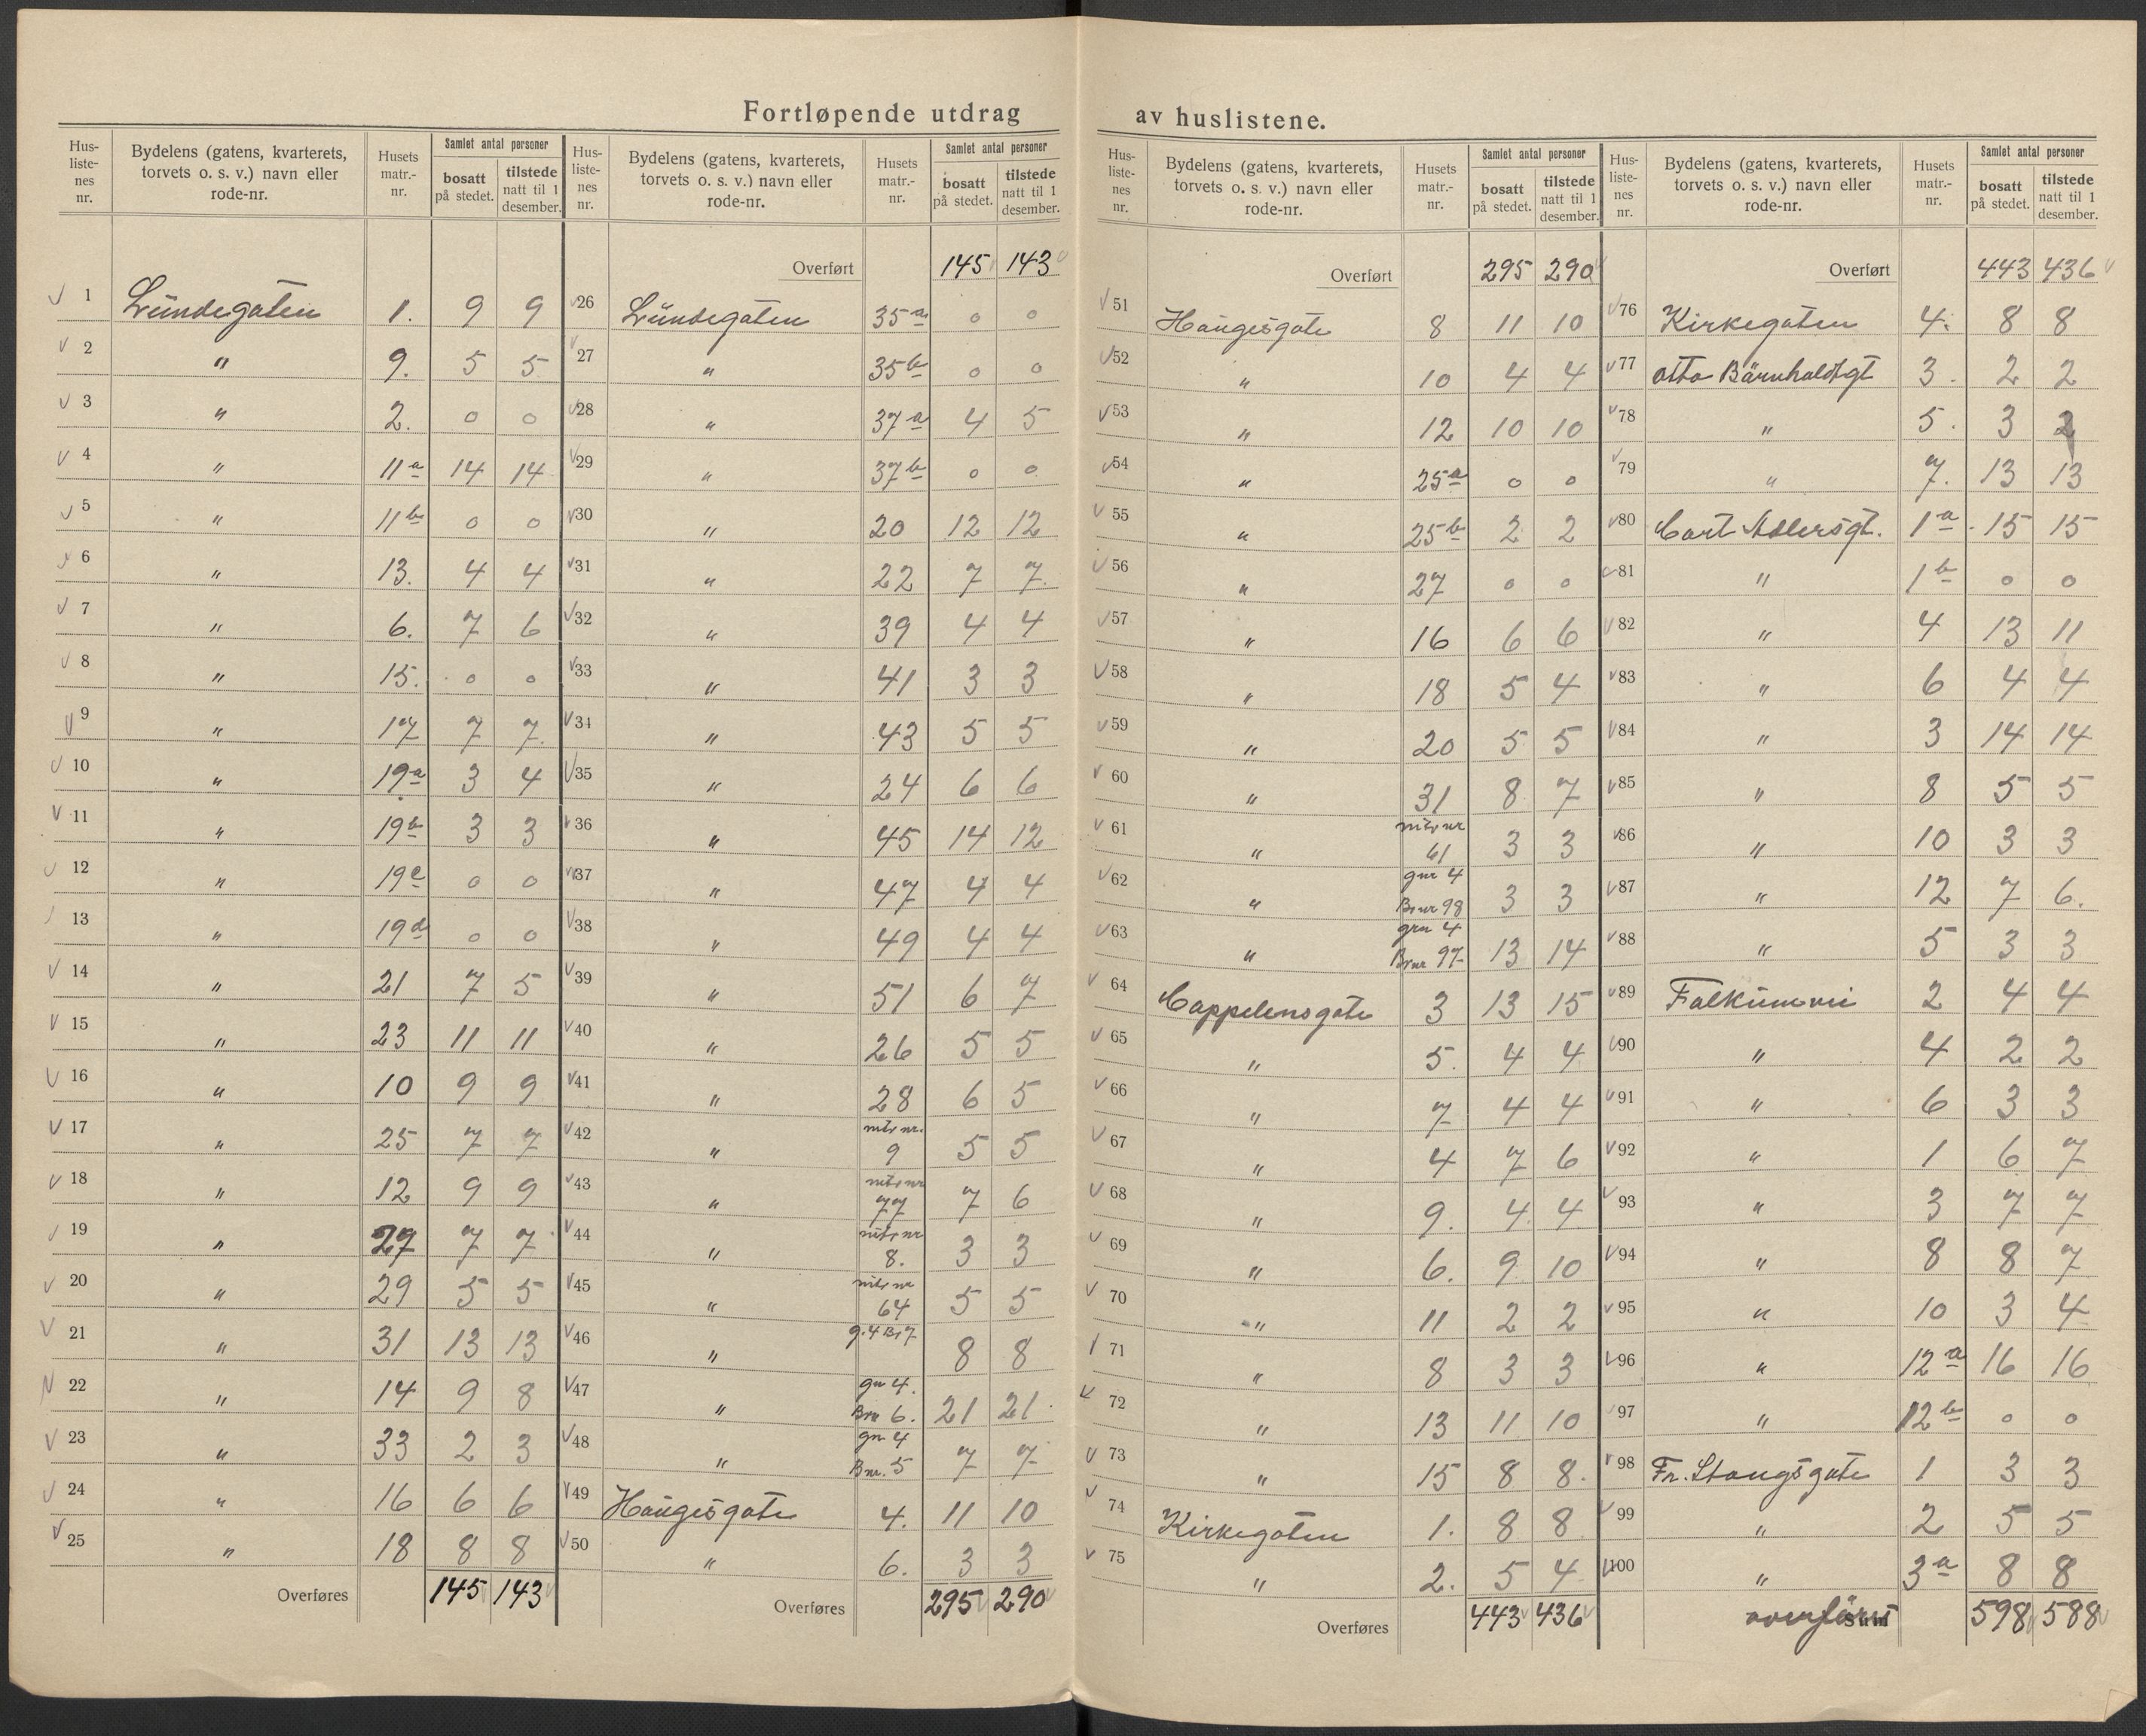 Fortløpende utdrag av huslistene.
Hus-liste-nes nr. | Bydelens (gatens, kvarterets, torvets o. s. v.) navn eller rode-nr. | Husets matr.-nr. | Samlet antal personer bosatt på stedet. | tilstede natt til 1 desember.
1 Lundegaten 1. 9 9
2 " 9. 5 5
3 " 2. 0 0
4 " 11a 14 14
5 " 11b 0 0
6 " 13. 4 4
7 " 6. 7 6
8 " 15. 0 0
9 " 17 7 7
10 " 19a 3 4
11 " 19b 3 3
12 " 19c 0 0
13 " 19d 0 0
14 " 21 7 5
15 " 23 11 11
16 " 10 9 9
17 " 25 7 7
18 " 12 9 9
19 " 27 7 7
20 " 29 5 5
21 " 31 13 13
22 " 14 9 8
23 " 33 2 3
24 " 16 6 6
25 " 18 8 8
Overføres 145 143
Hus-liste-nes nr. | Bydelens (gatens, kvarterets, torvets o. s. v.) navn eller rode-nr. | Husets matr.-nr. | Samlet antal personer bosatt på stedet. | tilstede natt til 1 desember.
Overført 145 143
26 Lundegaten 35a 0 0
27 " 35b 0 0
28 " 37a 4 5
29 " 37b 0 0
30 " 20 12 12
31 " 22 7 7
32 " 39 4 4
33 " 41 3 3
34 " 43 5 5
35 " 24 6 6
36 " 45 14 12
37 " 47 4 4
38 " 49 4 4
39 " 51 6 7
40 " 26 5 5
41 " 28 6 5
42 " mtr nr. 9 5 5
43 " mtr nr 77 7 6
44 " mtr nr 8. 3 3
45 " mtr nr 64 5 5
46 " g.4 Br 7. 8 8
47 " gnr 4. Bnr 6. 21 21
48 " gnr 4 Bnr. 5 7 7
49 Haugesgate 4. 11 10
50 " 6. 3 3
Overføres 295 290
Hus-liste-nes nr. | Bydelens (gatens, kvarterets, torvets o. s. v.) navn eller rode-nr. | Husets matr.-nr. | Samlet antal personer bosatt på stedet. | tilstede natt til 1 desember.
Overført 295 290
51 Haugesgate 8 11 10
52 " 10 4 4
53 " 12 10 10
54 " 25a 0 0
55 " 25b 2 2
56 " 27 0 0
57 " 16 6 6
58 " 18 5 4
59 " 20 5 5
60 " 31 8 7
61 " mtr nr 61 3 3
62 " gnr 4 Bnr 98 3 3
63 " gnr 4 Bnr 97 13 14
64 Cappelensgate 3 13 15
65 " 5. 4 4
66 " 7 4 4
67 " 4 7 6
68 " 9. 4 4
69 " 6. 9 10
70 " 11 2 2
71 " 8 3 3
72 " 13 11 10
73 " 15 8 8
74 Kirkegaten 1. 8 8
75 " 2. 5 4
Overføres 443 436
Hus-liste-nes nr. | Bydelens (gatens, kvarterets, torvets o. s. v.) navn eller rode-nr. | Husets matr.-nr. | Samlet antal personer bosatt på stedet. | tilstede natt til 1 desember.
Overført 443 436
76 Kirkegaten 4. 8 8
77 Otto Bärnholdtgt 3. 2 2
78 " 5. 3 2
79 " 7. 13 13
80 Cort Adlersgt. 1a 15 15
81 " 1b 0 0
82 " 4 13 11
83 " 6 4 4
84 " 3 14 14
85 " 8 5 5
86 " 10 3 3
87 " 12 7 6.
88 " 5 3 3
89 Falkumvei 2 4 4
90 " 4 2 2
91 " 6 3 3
92 " 1 6 7
93 " 3 7 7
94 " 8 8 7
95 " 10 3 4
96 " 12a 16 16
97 " 12b 0 0
98 Fr. Stangsgate 1 3 3
99 " 2 5 5
100 " 3a 8 8
overføres 598 588